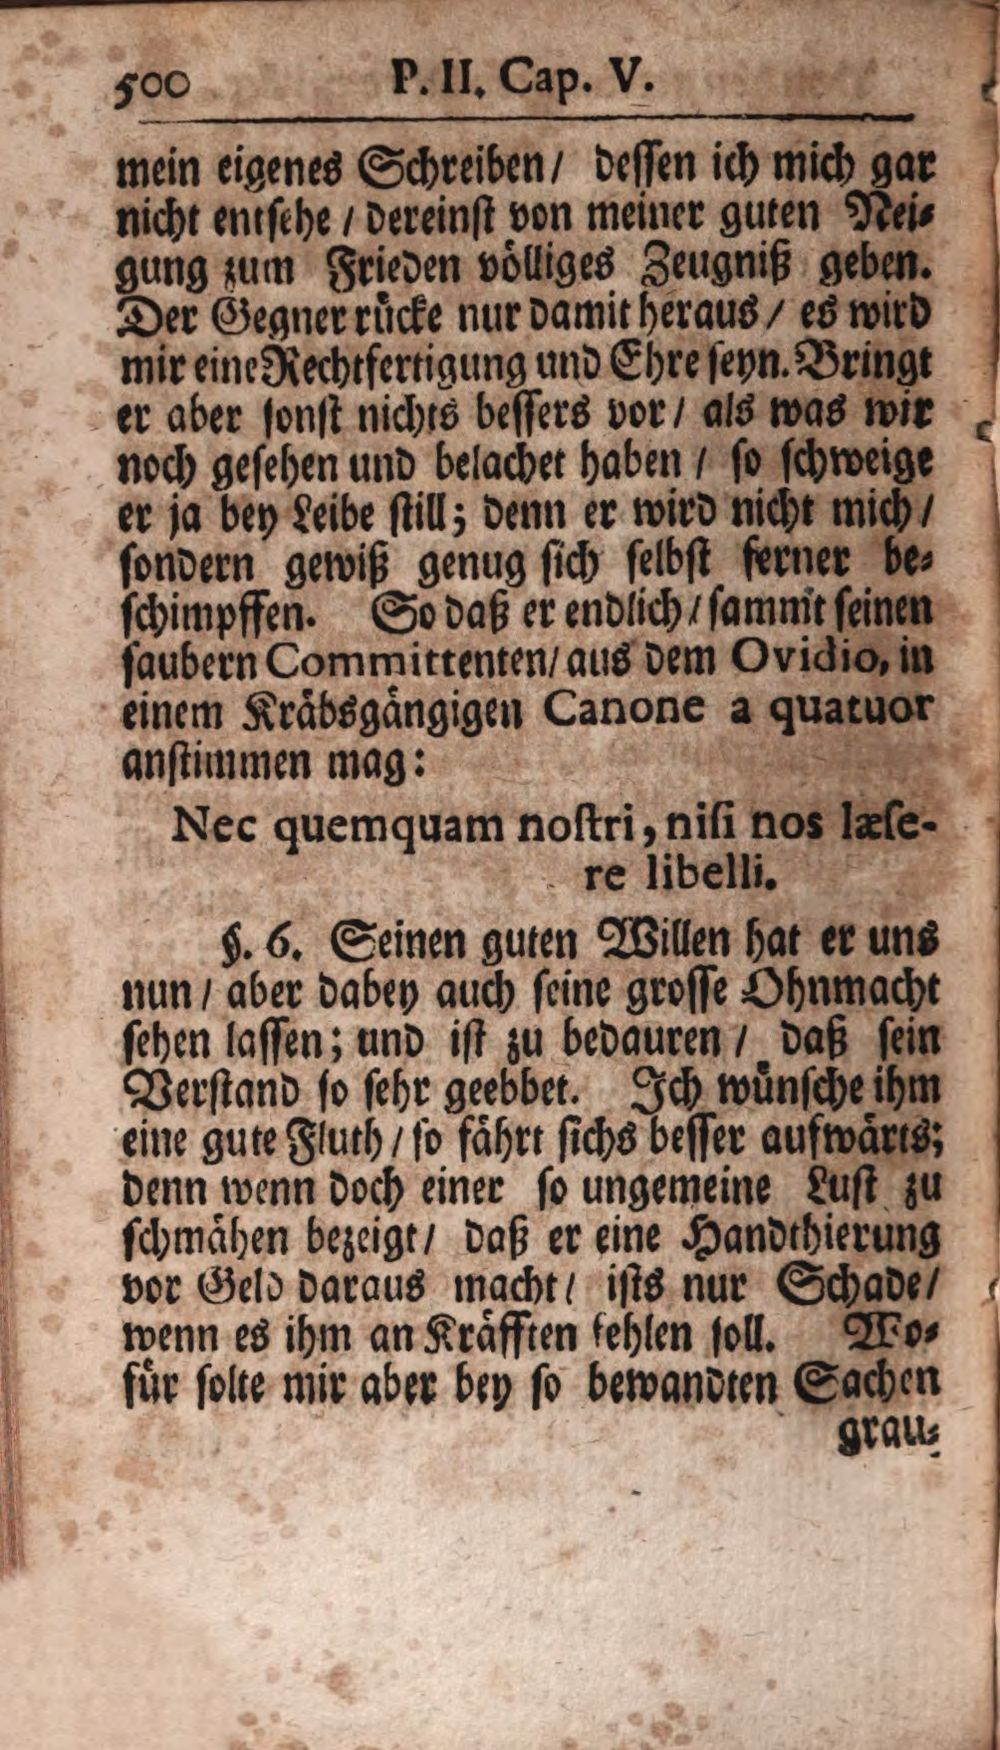 500 P. II. Cap. V.
mein eigenes Schreiben / dessen ich mich gar
nicht entsehe / dereinst von meiner guten Nei-
gung zum Frieden völliges Zeugniß geben.
Der Gegner rücke nur damit heraus / es wird
mir eine Rechtfertigung und Ehre seyn. Bringt
er aber sonst nichts bessers vor / als was wir
noch gesehen und belachet haben / so schweige
er ja bey Leibe still; denn er wird nicht mich /
sondern gewiß genug sich selbst ferner be-
schimpffen. So daß er endlich / sammt seinen
saubern Committenten / aus dem Ovidio, in
einem Kräbsgängigen Canone a quatuor
anstimmen mag:
Nec quemquam nostri, nisi nos læse-
re libelli.
§. 6. Seinen guten Willen hat er uns
nun / aber dabey auch seine grosse Ohnmacht
sehen lassen; und ist zu bedauren / daß sein
Verstand so sehr geebbet. Ich wünsche ihm
eine gute Fluth / so fährt sichs besser aufwärts;
denn wenn doch einer so ungemeine Lust zu
schmähen bezeigt / daß er eine Handthierung
vor Geld daraus macht / ists nur Schade /
wenn es ihm an Kräfften fehlen soll. Wo-
für solte mir aber bey so bewandten Sachen
grau-